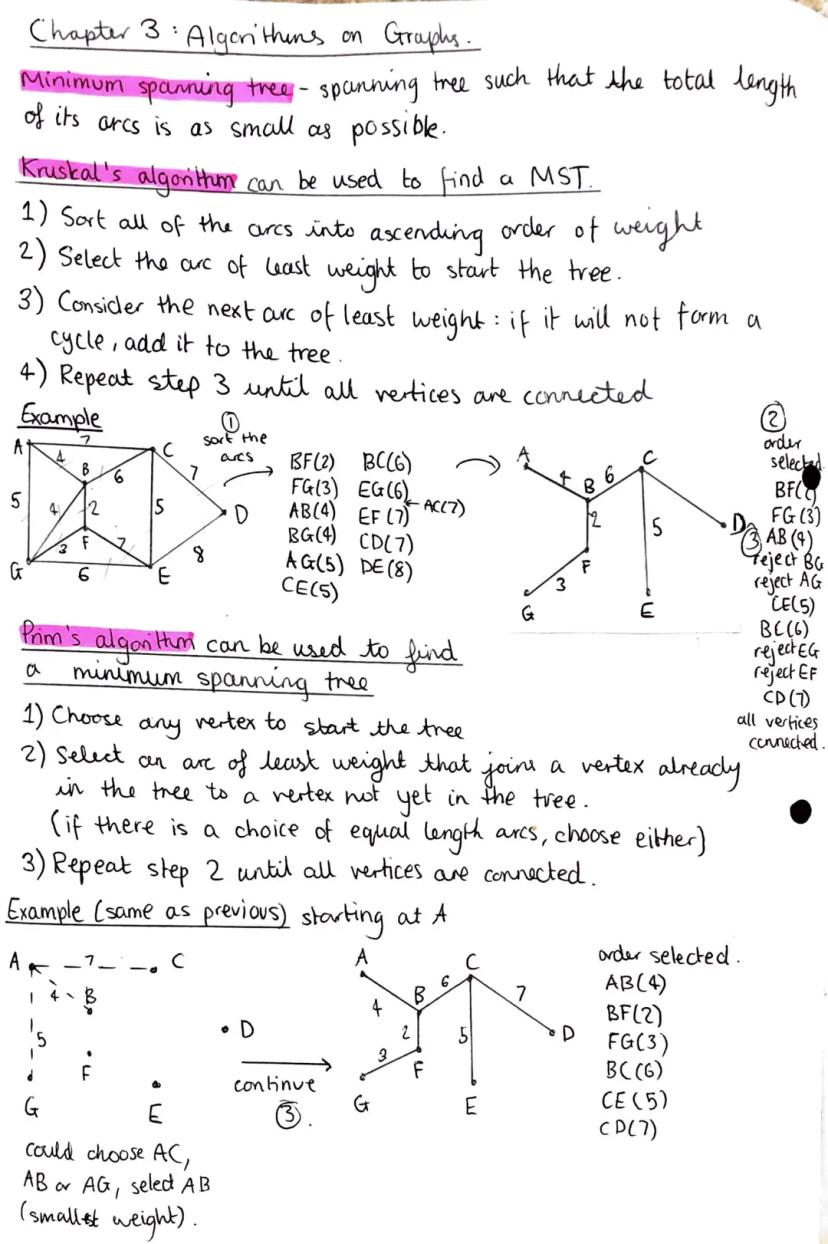 Chapter 3: Algorithms on Graphs.
Minimum spanning tree - spanning tree such that the total length
of its arcs is as small as possible.
Kruskal's algorithm can be used to find a MST.
1) Sort all of the arcs into ascending order of weight
2) Select the arc of least weight to start the tree.
3) Consider the next arc of least weight: if it will not form a
cycle, add it to the tree.
4) Repeat step 3 until all vertices are connected
Example
A 7 C
4 B 6 7
5 4 2 5 D
3 F 7 8
G 6 E
①
sort the
arcs
BF(2) BC(6)
FG(3) EG(6)
AB(4) EF(7) ← AC(7)
BG(4) CD(7)
AG(5) DE(8)
CE(5)
A C
4 B 6
2 5 D
F
3
G E
②
order
selected
BF(
FG(3)
③ AB(4)
reject BG
reject AG
CE(5)
BC(6)
reject EG
reject EF
CD(7)
all vertices
connected.
Prim's algorithm can be used to find
a minimum spanning tree
1) Choose any vertex to start the tree
2) Select an arc of least weight that joins a vertex already
in the tree to a vertex not yet in the tree.
(if there is a choice of equal length arcs, choose either)
3) Repeat step 2 until all vertices are connected.
Example (same as previous) starting at A
A 7 C
4 B
5 D
F
G E
continue
③.
A C
4 B 6 7
2 5 D
3 F
G E
order selected.
AB(4)
BF(2)
FG(3)
BC(6)
CE(5)
CD(7)
could choose AC,
AB or AG, select AB
(smallest weight).